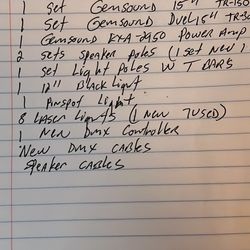 1 set Gemsound 15" TR-150
1 set Gemsound Duel 15" TR-30
1 Gemsound RXA 2950 Power Amp
2 sets speaker poles (1 set New)
1 set Light Poles W T BARS
1 12" Black light
1 Pinspot Light
8 Laser Lights (1 New 7 USED)
1 New Dmx Controller
New Dmx cables
speaker cables